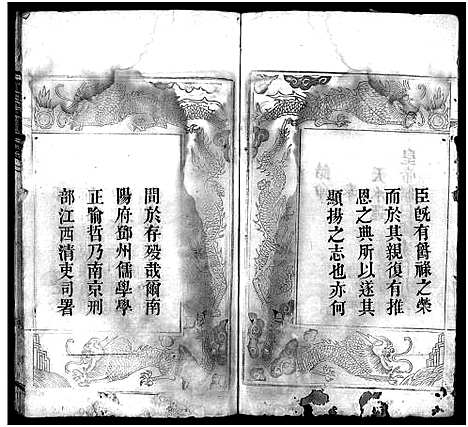 臣既有爵祿之榮
而於其親復有推
恩之典所以遂其
顯揚之志也亦何
間於存歿哉爾南
陽府鄧州儒學學
正喻哲乃南京刑
部江西清吏司署